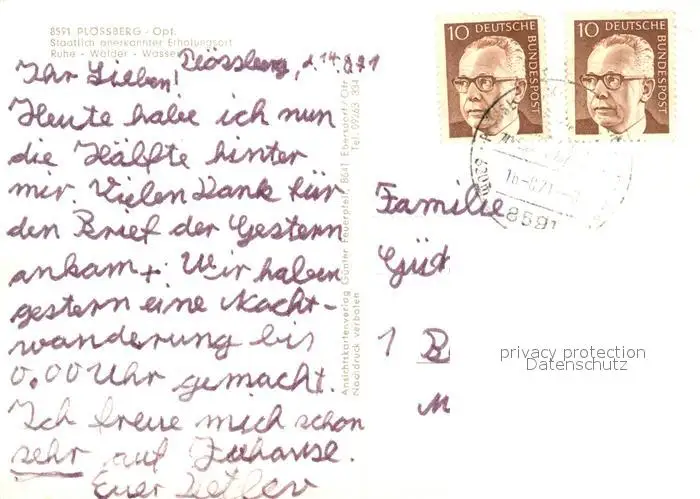 8591 PLÖSSBERG - Opf.
Staatlich anerkannter Erholungsort
Ruhe - Wälder - Wasser
Plössberg, d. 14.8.71
Ihr Lieben!
Heute habe ich nun
die Hälfte hinter
mir. Vielen Dank für
den Brief der Gestern
ankam. Wir haben
gestern eine Nacht-
wanderung bis
0.00 Uhr gemacht.
Ich freue mich schon
sehr auf Zuhause.
Euer Detlev
Ansichtskartenverlag Günter Feuerpfeil, 8641 Ebersdorf/Ofr.
Nachdruck verboten
Tel. 09263 334
10 DEUTSCHE BUNDESPOST
10 DEUTSCHE BUNDESPOST
8591
Familie
Güt
1 B
M
privacy protection
Datenschutz